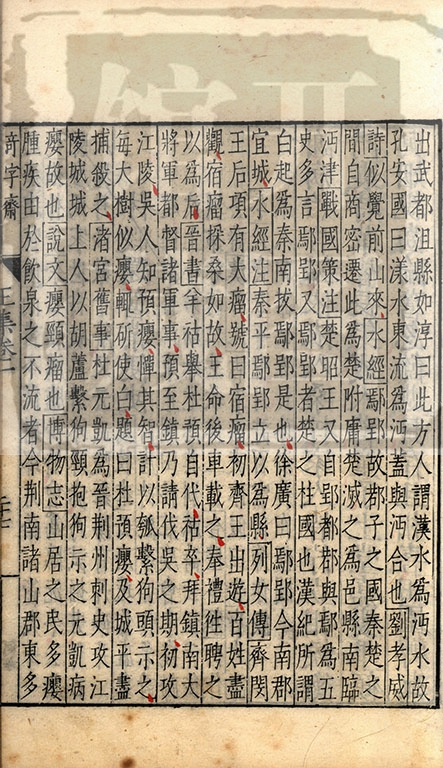 出武都沮縣如淳曰此方人謂漢水爲沔水故
孔安國曰漾水東流爲沔蓋與沔合也劉孝威
詩似覺前山來水經鄢郢故郡子之國秦楚之
間自商密遷此爲楚附庸楚滅之爲邑縣南臨
沔津戰國策注楚昭王又自郢都郡與鄢爲五
史多言鄢郢又鄢郢者楚之柱國也漢紀所謂
白起爲秦南拔鄢郢是也徐廣曰鄢郢今南郡
宜城水經注秦平鄢郢立以爲縣列女傳齊閔
王后項有大瘤號曰宿瘤初齊王出遊百姓盡
觀宿瘤採桑如故王命後車載之奉禮徃聘之
以爲后晉書羊祜舉杜預自代祜卒拜鎮南大
將軍都督諸軍事預至鎮乃請伐吳之期初攻
江陵吳人知預癭憚其智計以瓠繫狗頭示之
每大樹似癭輒斫使白題曰杜預癭及城平盡
捕殺之渚宮舊事杜元凱爲晉荆州刺史攻江
陵城城上人以胡蘆繫狗頸抱狗示之元凱病
癭故也說文癭頸瘤也博物志山居之民多癭
腫疾由於飲泉之不流者今荆南諸山郡東多
奇字齋